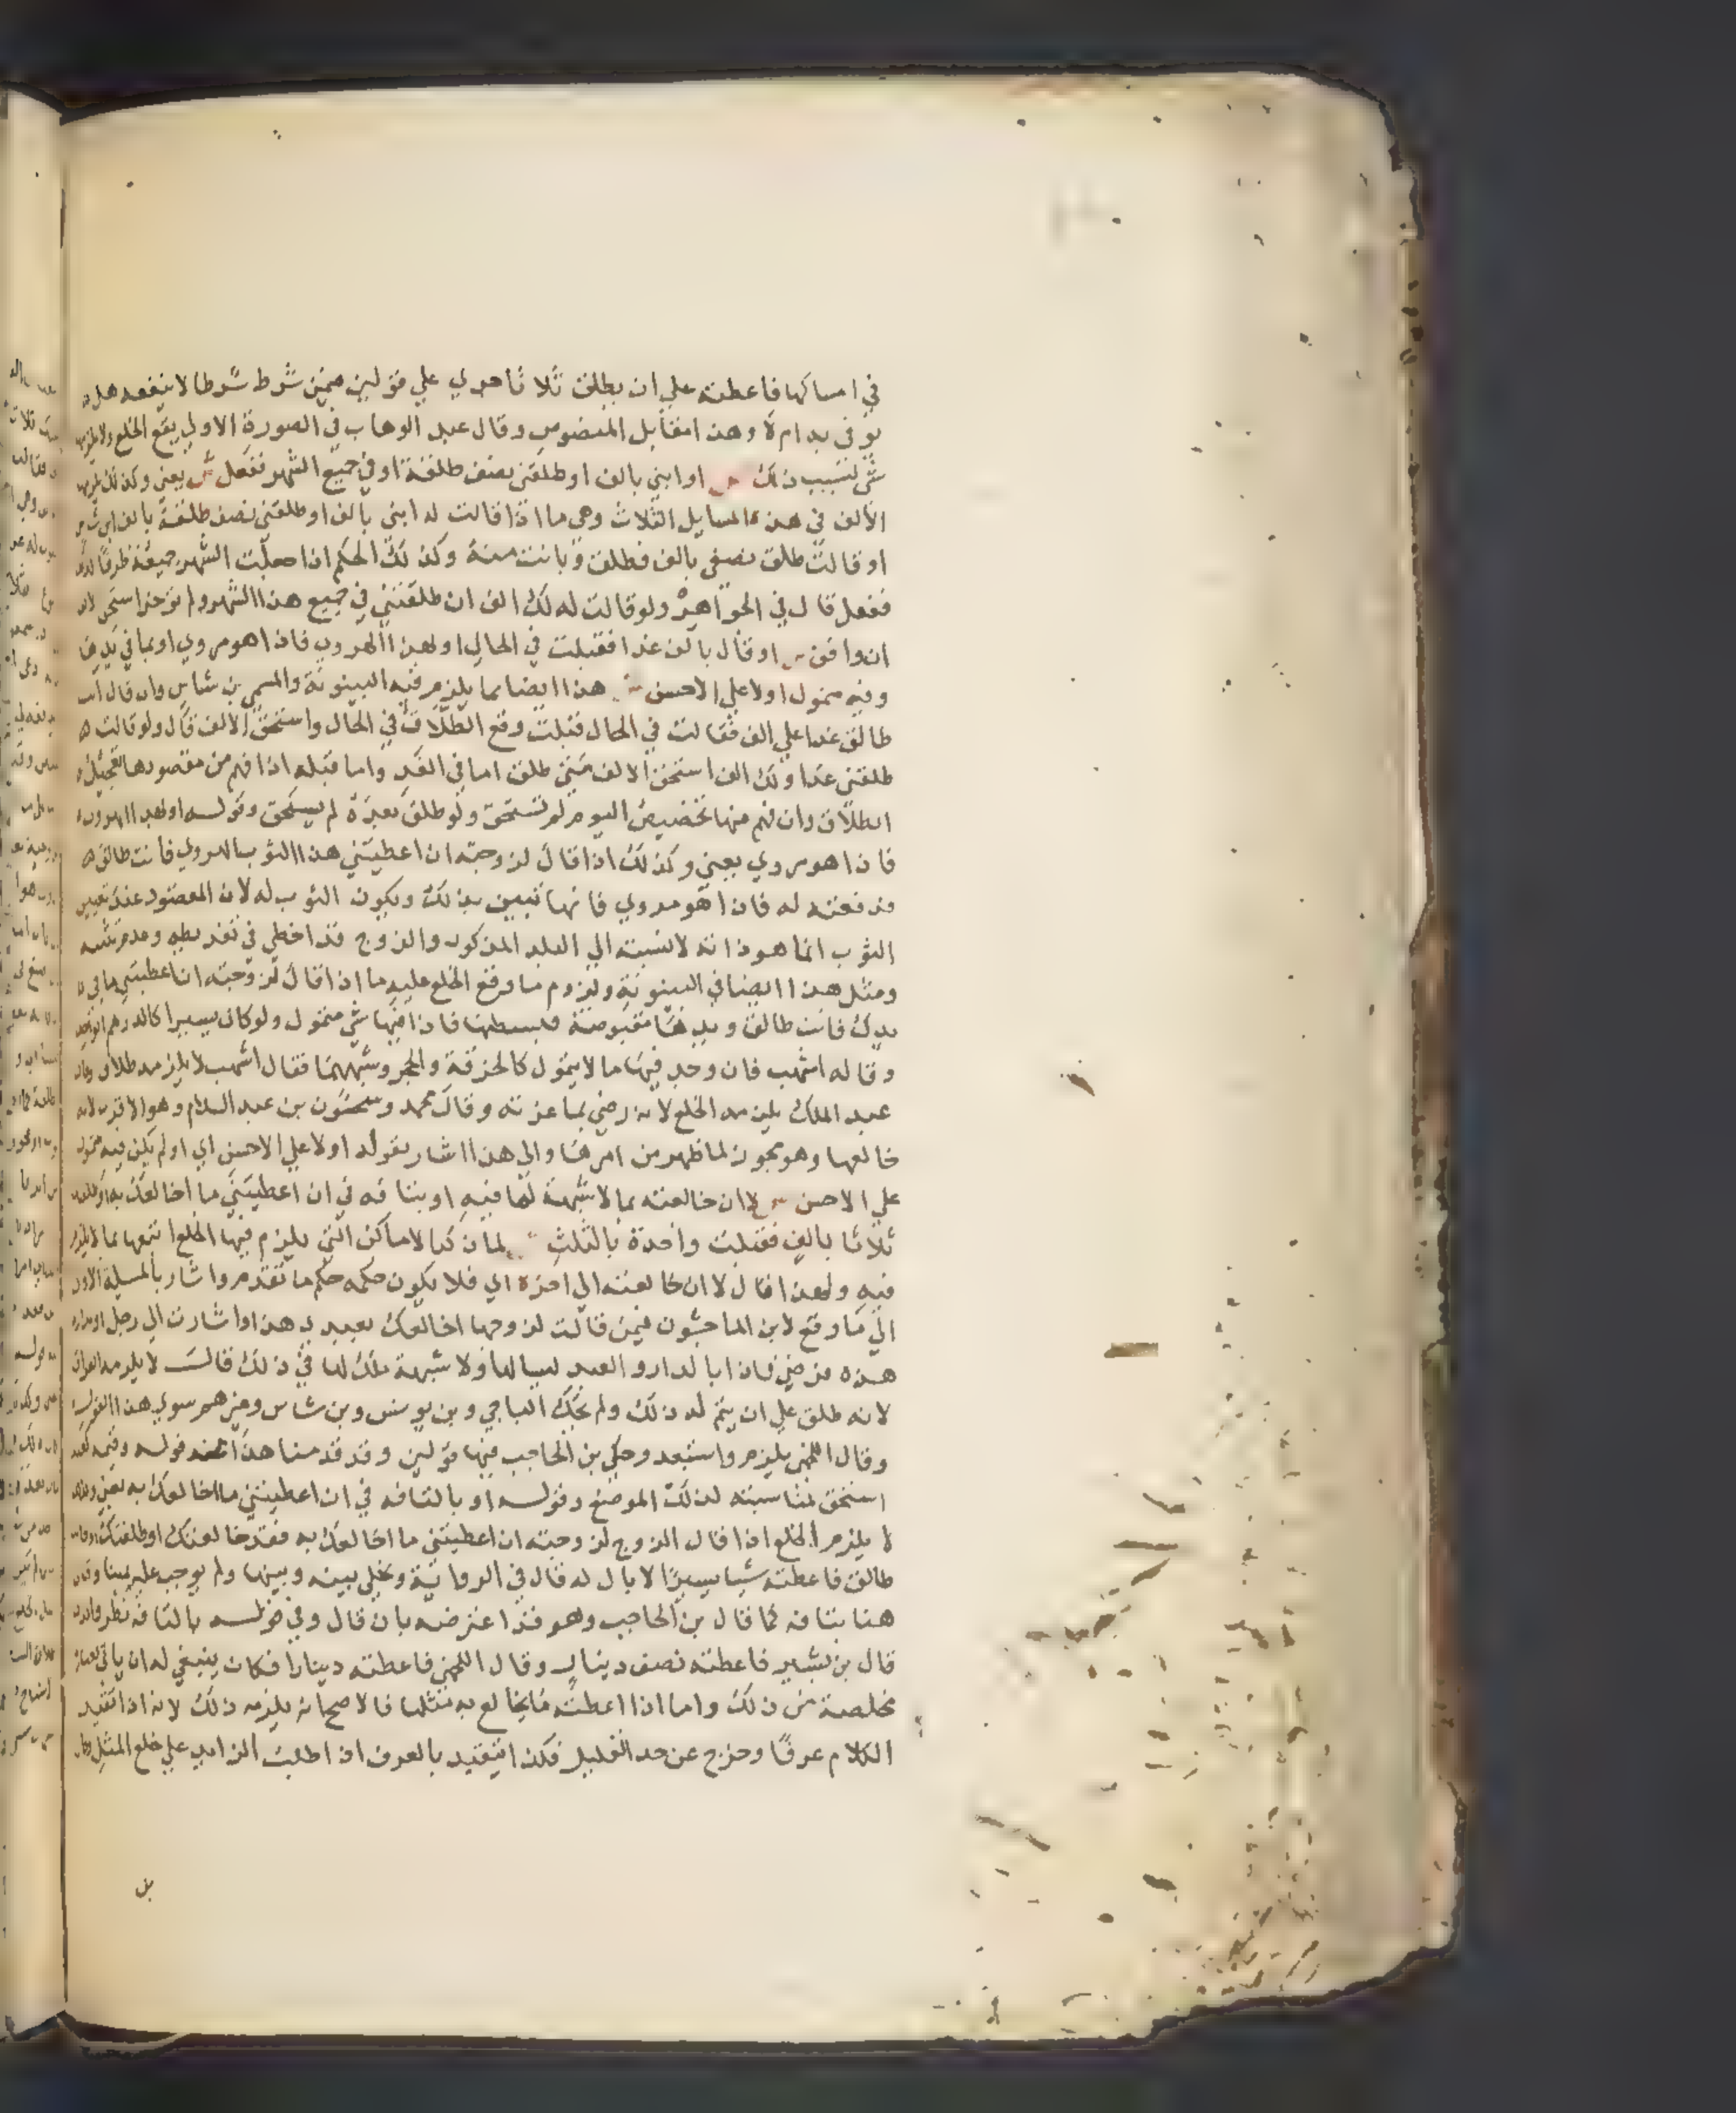 في امساكها فاعطته علي ان يطلق ثلاثا جري علي قولين فيمن شرط شرطا لا ينفعه هل
يوفي به ام لا وهذا مقابل المنصوص وقال عبد الوهاب في الصورة الاولي يقع الخلع ولا يلزمها
شي لتسبب ذلك ص او ابني بالف او طلقني نصف طلقة او في جميع الشهر ففعل ش يعني وكذلك يلزمها
الالف في هذه المسايل الثلاث وهي ما اذا قالت له ابني بالف او طلقني نصف طلقة بالف
او قالت طلق نصفي بالف فطلق وبانت منه وكذلك الحكم اذا جعلت الشهر جميعه ظرفا
ففعل قال في الجواهر ولو قالت له لك الف ان طلقتني في جميع هذا الشهر ولم يوخر استحق
ان وافق ص او قال بالف غدا فقبلت في الحال او بهذا الهروي فاذا هو مروي او بما في يدها
وفيه متمول او لا علي الاحسن ش هذا ايضا مما يلزم فيه البينونة والمسمي بن شاس وان قال انت
طالق غدا علي الف فقالت في الحال قبلت وقع الطلاق في الحال واستحق الالف قال ولو قالت
طلقني غدا ولك الف استحق الالف متي طلق اما في الغد واما قبله اذا فهم من مقصودها تعجيل
الطلاق وان فهم منها تخصيص اليوم لم تستحق ولو طلق بعده لم يستحق وقوله او بهذا الهروي
فاذا هو مروي يعني وكذلك اذا قال لزوجته ان اعطيتني هذا الثوب الهروي فانت طالق
فدفعته له فاذا هو مروي فانها تبين بذلك ويكون الثوب له لان المقصود عند تعيين
الثوب انما هو ذاته لا نسبته الي البلد المذكور والزوج قد اخطي في تفريطه وعدم تثبته
ومثل هذا ايضا في البينونة ولزوم ما وقع الخلع عليه ما اذا قال لزوجته ان اعطيتني ما في
يدك فانت طالق ويدها مقبوضة فبسطتها فاذا فيها شي متمول ولو كان يسيرا كالدرهم
وقاله اشهب فان وجد فيها ما لا يتمول كالخزفة والحجر وشبههما فقال اشهب لا يلزمه طلاق وقال
عبد الملك يلزمه الخلع لانه رضي بما غرته وقال محمد وسحنون بن عبد السلام وهو الاقرب لانه
خالعها وهو مجوز لما ظهر من امرها والي هذا اشار بقوله او لا علي الاحسن اي او لم يكن فيه متمول
علي الاحسن ص لا ان خالعته بما لا شبهة لها فيه او بتافه في ان اعطيتني ما اخالعك به او طلقتك
ثلاثا بالف فقبلت واحدة بالثلث ش لما ذكر الاماكن التي يلزم فيها الخلع اتبعها بما لا يلزم
فيه ولهذا قال لا ان خالعته الي اخره اي فلا يكون حكمه حكم ما تقدم واشار بالمسيلة الاولي
الي ما وقع لابن الماجشون فيمن قالت لزوجها اخالعك بعبدي هذا واشارت الي رجل او بداري
هذه فرضي فاذا بالدار والعبد ليسا لها ولا شبهة ملك لها في ذلك قالت لا يلزمه الفراق
لانه طلق علي ان يتم له ذلك ولم يحك الباجي وبن يونس وبن شاس وغيرهم سوي هذا القول
وقال اللخمي يلزم واستبعد وحكي بن الحاجب فيها قولين وقد قدمنا هذا عند قوله وقيمة كعبد
استحق لمناسبته لذلك الموضع وقوله او بالتافه في ان اعطيتني ما اخالعك به يعني ولا
يلزم الخلع اذا قال الزوج لزوجته ان اعطيتني ما اخالعك به فقد خالعتك او طلقتك او فانت
طالق فاعطته شيا يسيرا لا بال له قال في الرواية ويخلي بينه وبينها ولم يوجب عليه يمينا وقال
هنا بتافه كما قال بن الحاجب وهو قد اعترضه بان قال وفي قوله بالتافه نظر والذي
قال بن بشير فاعطته نصف دينار وقال اللخمي فاعطته دينارا فكان ينبغي له ان ياتي بعبارة
مخلصة من ذلك واما اذا اعطته ما يخالع به مثلها فالاصح انه يلزمه ذلك لانه اذا تقيد
الكلام عرفا وخرج عن حد القليل فكذا يتقيد بالعرف اذ اطلب الزايد علي خلع المثل